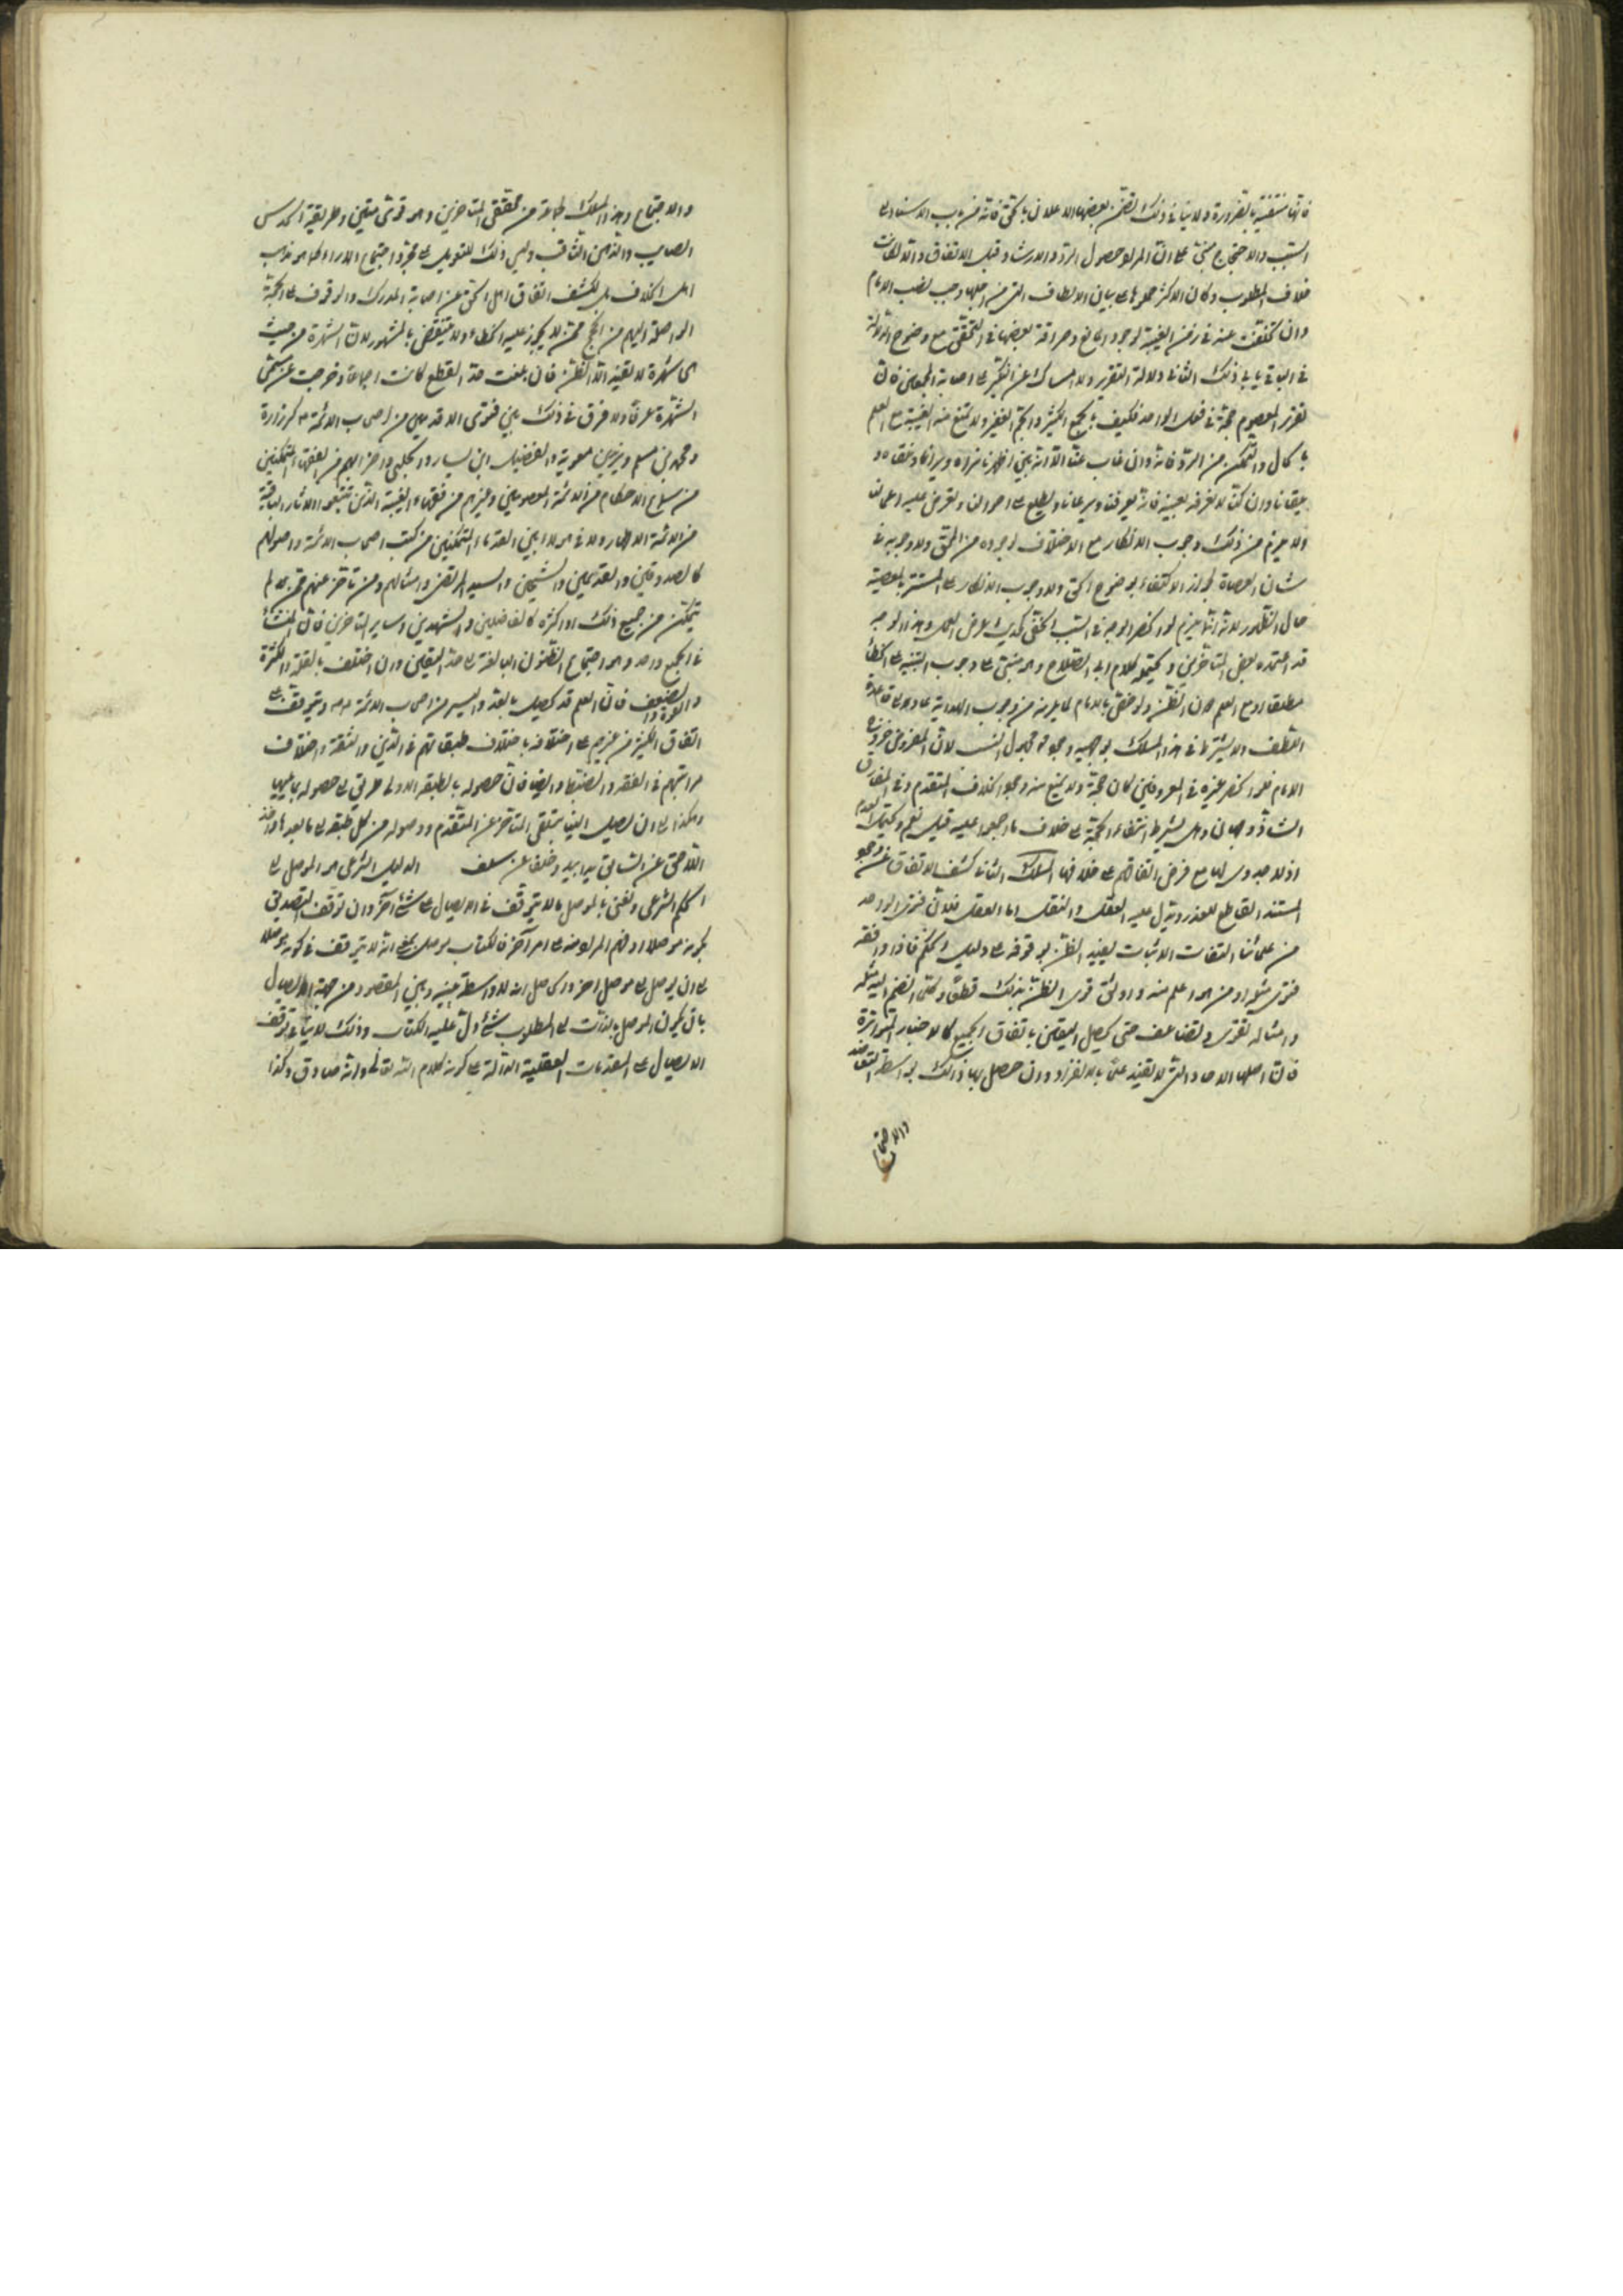 فانها منتفية بالضرورة ولا ينافي ذلك تضمن بعضها الاعلان بالحق فانه من باب الاسناد الى
السبب والاحتجاج مبني على ان المراد حصول الرد والارشاد قبل الاتفاق والالتفات
خلاف المطلوب وكان الاكثر حملوها على بيان الالطاف التي من اجلها وجب نصب الامام
وان تخلفت عنه في زمن الغيبة لوجود المانع ومرافقة بعضها في التحقق مع وضوح الدلالة
في الباقي يابى ذلك الثاني دلالة التقرير والامساك عن النكير على اصابة المجمعين فان
تقرير المعصوم حجة في فعل الواحد فكيف بالجمع الكثير والجم الغفير ولا يمتنع منه الغيبة مع العلم
بالحال والتمكن من الرد فانه وان غاب عنا الا انه بين اظهرنا نراه ويرانا ونلقاه و
يلقانا وان كنا لا نعرفه بعينه فانه يعرفنا ويرعانا ويطلع على احوالنا وتعرض عليه اعمالنا
ولا يلزم من ذلك وجوب الانكار مع الاختلاف لوجوده من المحق ولا وجوبه في
شان العصاة لجواز الاكتفاء بوضوح الحق ولا وجوب الانكار على المستتر بالمعصية
حال الظهور لانه انما يلزم لو انحصر الوجه في السبب الخفي كحديث عرض العمل وهذا الوجه
قد اعتمده بعض المتاخرين ويحتمله كلام ابي الصلاح وهو مبني على وجوب التنبيه على الخطأ
مطلقا او مع العلم دون الظن ولو خفي بالامام لما يلزمه من وجوب الهداية عملا بقاعدة
اللطف ولا يشترط في هذا المسلك بوجهيه وجود مجهول النسب لان المفروض خروج
الامام فلو انحصر غيره في المعروفين كان حجة ولا يمنع منه وجود الخلاف المتقدم وفي المقارن
الشاذ وجهان وهل يشترط انتفاء الحجة على خلاف ما اجمعوا عليه قيل نعم ويحتمل العدم
اذ لا جدوى لها مع فرض اتفاقهم على خلافها المسلك الثالث كشف الاتفاق عن وجود
المستند القاطع للعذر ويدل عليه العقل والنقل اما العقل فلان فتوى الواحد
من علمائنا الثقات الاثبات يفيد الظن بوقوفه على دليل الحكم فاذا وافقه
فتوى مثله او من هو اعلم منه واوثق قوى الظن بذلك قطعا ومتى انضم اليه مثله
وامثاله تقوى وتضاعف حتى يحصل اليقين باتفاق الجميع كالاخبار المتواترة
فان اصلها الاحاد التي لا تفيد علما بالانفراد وان حصل بها ذلك بواسطة التعاضد
والاجتماع
والاجتماع وهذا المسلك لجماعة من محققي المتاخرين وهو قوي متين وطريقة الحدس
الصايب والذهن الثاقب وليس ذلك للتعويل على مجرد اجتماع الاراء كما هو مذهب
اهل الخلاف بل لكشف اتفاق اهل الحق عن اصابة المدرك والوقوف على الحجة
الواصلة اليهم من الحجج ممن لا يجوز عليه الخطاء ولا ينتقض بالمشهور لان الشهرة من حيث
هي شهرة لا تفيد الا الظن فان بلغت حد القطع كانت اجماعا وخرجت عن مسمى
الشهرة عرفا ولا فرق في ذلك بين فتوى الاقدمين من اصحاب الائمة ع كزرارة
ومحمد بن مسلم وبريد بن معوية والفضيل ابن يسار والحلبي واضرابهم من الفقهاء المتمكنين
من سماع الاحكام من الائمة المعصومين وغيرهم من فقهاء الغيبة الذين تتبعوا الاثار الباقية
من الائمة الاطهار ولا في هولاء بين القدماء المتمكنين من كتب اصحاب الائمة واصولهم
كالصدوقين والقديمين والشيخين والسيد المرتضى وامثالهم ومن تاخر عنهم ممن لم
يتمكن من جميع ذلك او اكثره كالفاضلين والشهيدين وساير المتاخرين فان المنشأ
في الجميع واحد وهو اجتماع الظنون البالغة الى حد اليقين وان اختلف بالقلة والكثرة
والقوة والضعف فان العلم قد يحصل بالعدد اليسير من اصحاب الائمة ع ويتوقف على
اتفاق الكثير من غيرهم على اختلافه باختلاف طبقاتهم في الدين والثقة واختلاف
مراتبهم في الفقه والضبط وايضا فان حصوله بالطبقة الاولى طريق الى حصوله بما يليها
وهكذا الى ان يصل الينا بتلقي المتاخر عن المتقدم ووصوله من كل طبقة الى ما بعدها واخذ
اللاحق عن السابق يدا بيد وخلفا عن سلف الدليل الشرعي هو الموصل الى
الحكم الشرعي ونعني بالموصل ما لا يتوقف في الايصال على شئ آخر وان توقف التصديق
بكونه موصلا او فهم المراد منه على امر آخر فالكتاب موصل بمعنى انه لا يتوقف في كونه موصلا
على ان يوصل الى موصل اخر والحاصل انه لا واسطة بينه وبين المقصود من جهة الايصال
بان يكون الموصل بالذات الى المطلوب شئ دل عليه الكتاب وذلك لا ينافي توقف
الايصال على المقدمات العقلية الدالة على كونه كلام الله تعالى وانه صادق وكذا